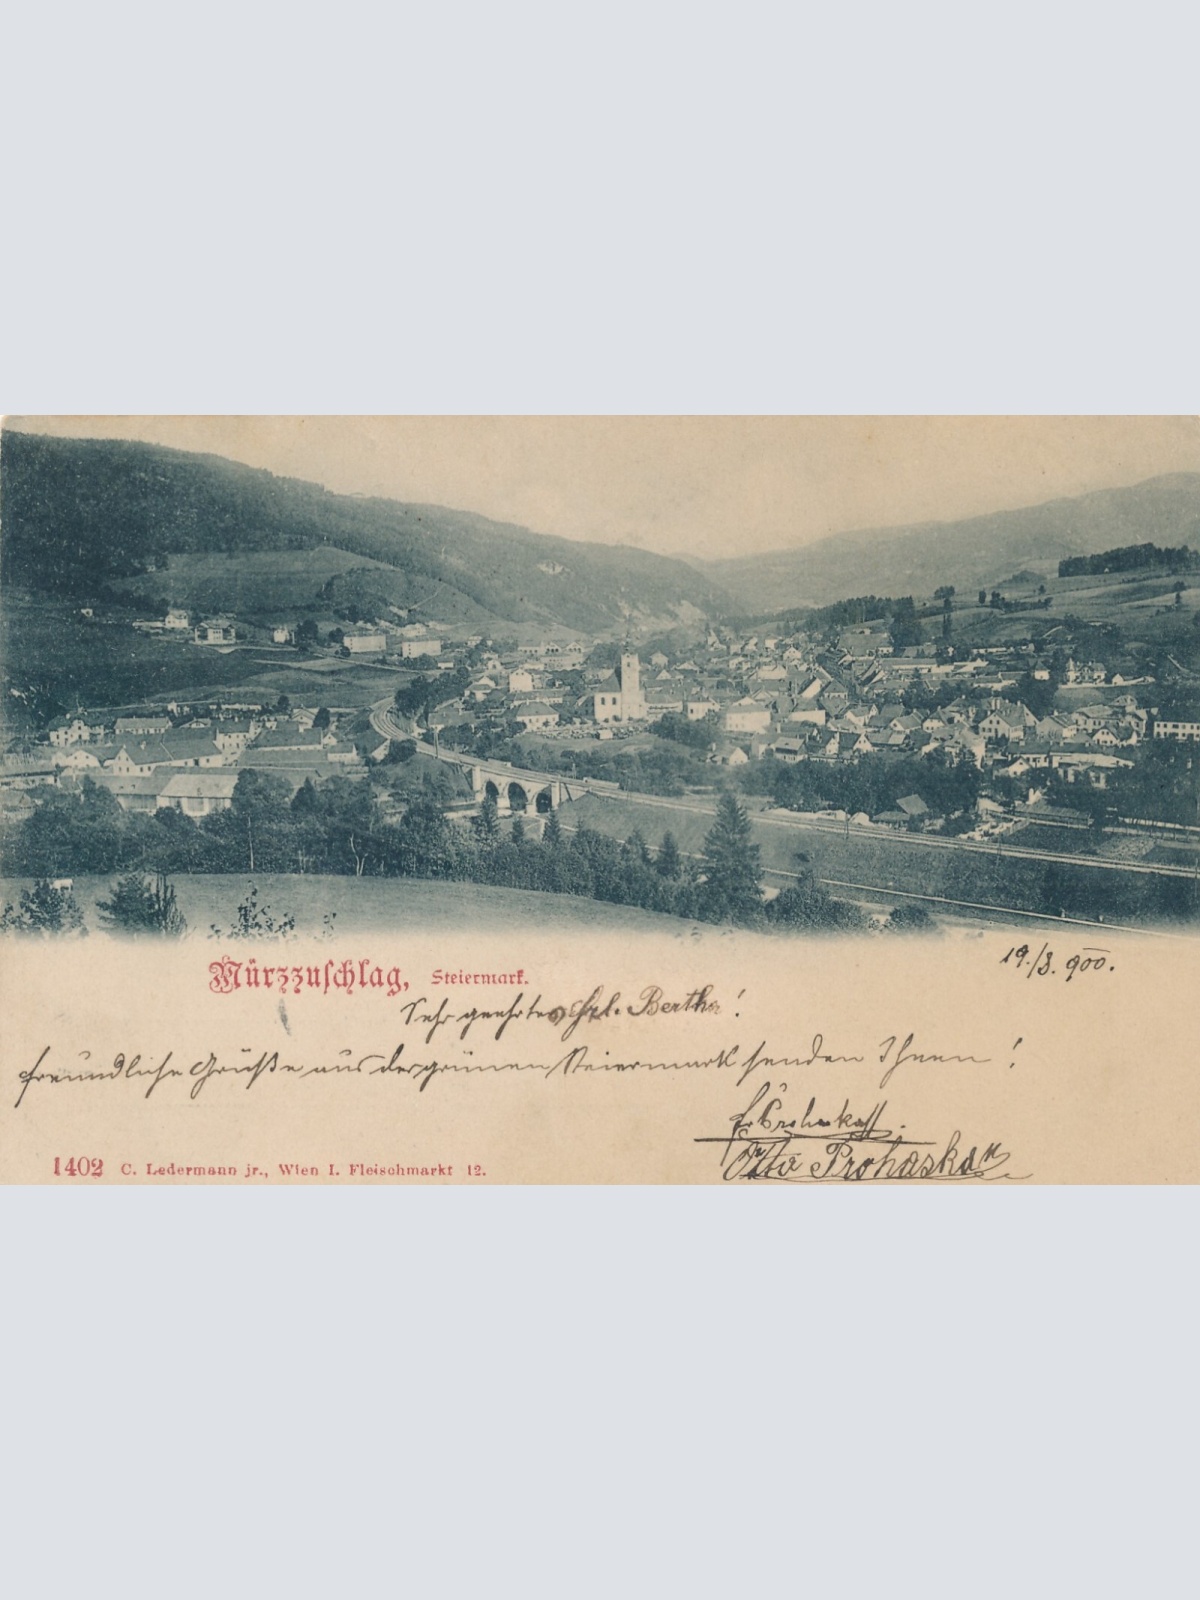 19./3. 900.
Mürzzuschlag, Steiermark.
Sehr geehrtes Frl. Bertha!
freundliche Grüße aus der grünen Steiermark senden Ihnen!
Otto Prohaska
1402 C. Ledermann jr., Wien I. Fleischmarkt 12.